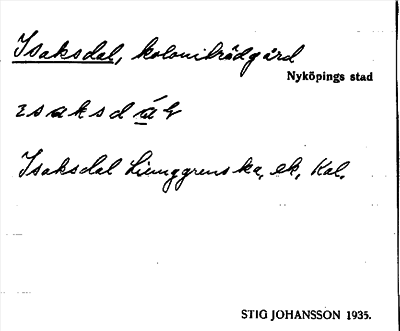 Isaksdal, koloniträdgård
Nyköpings stad
Isaksdal Liunggrenska, ek, Kal.
STIG JOHANSSON 1935.